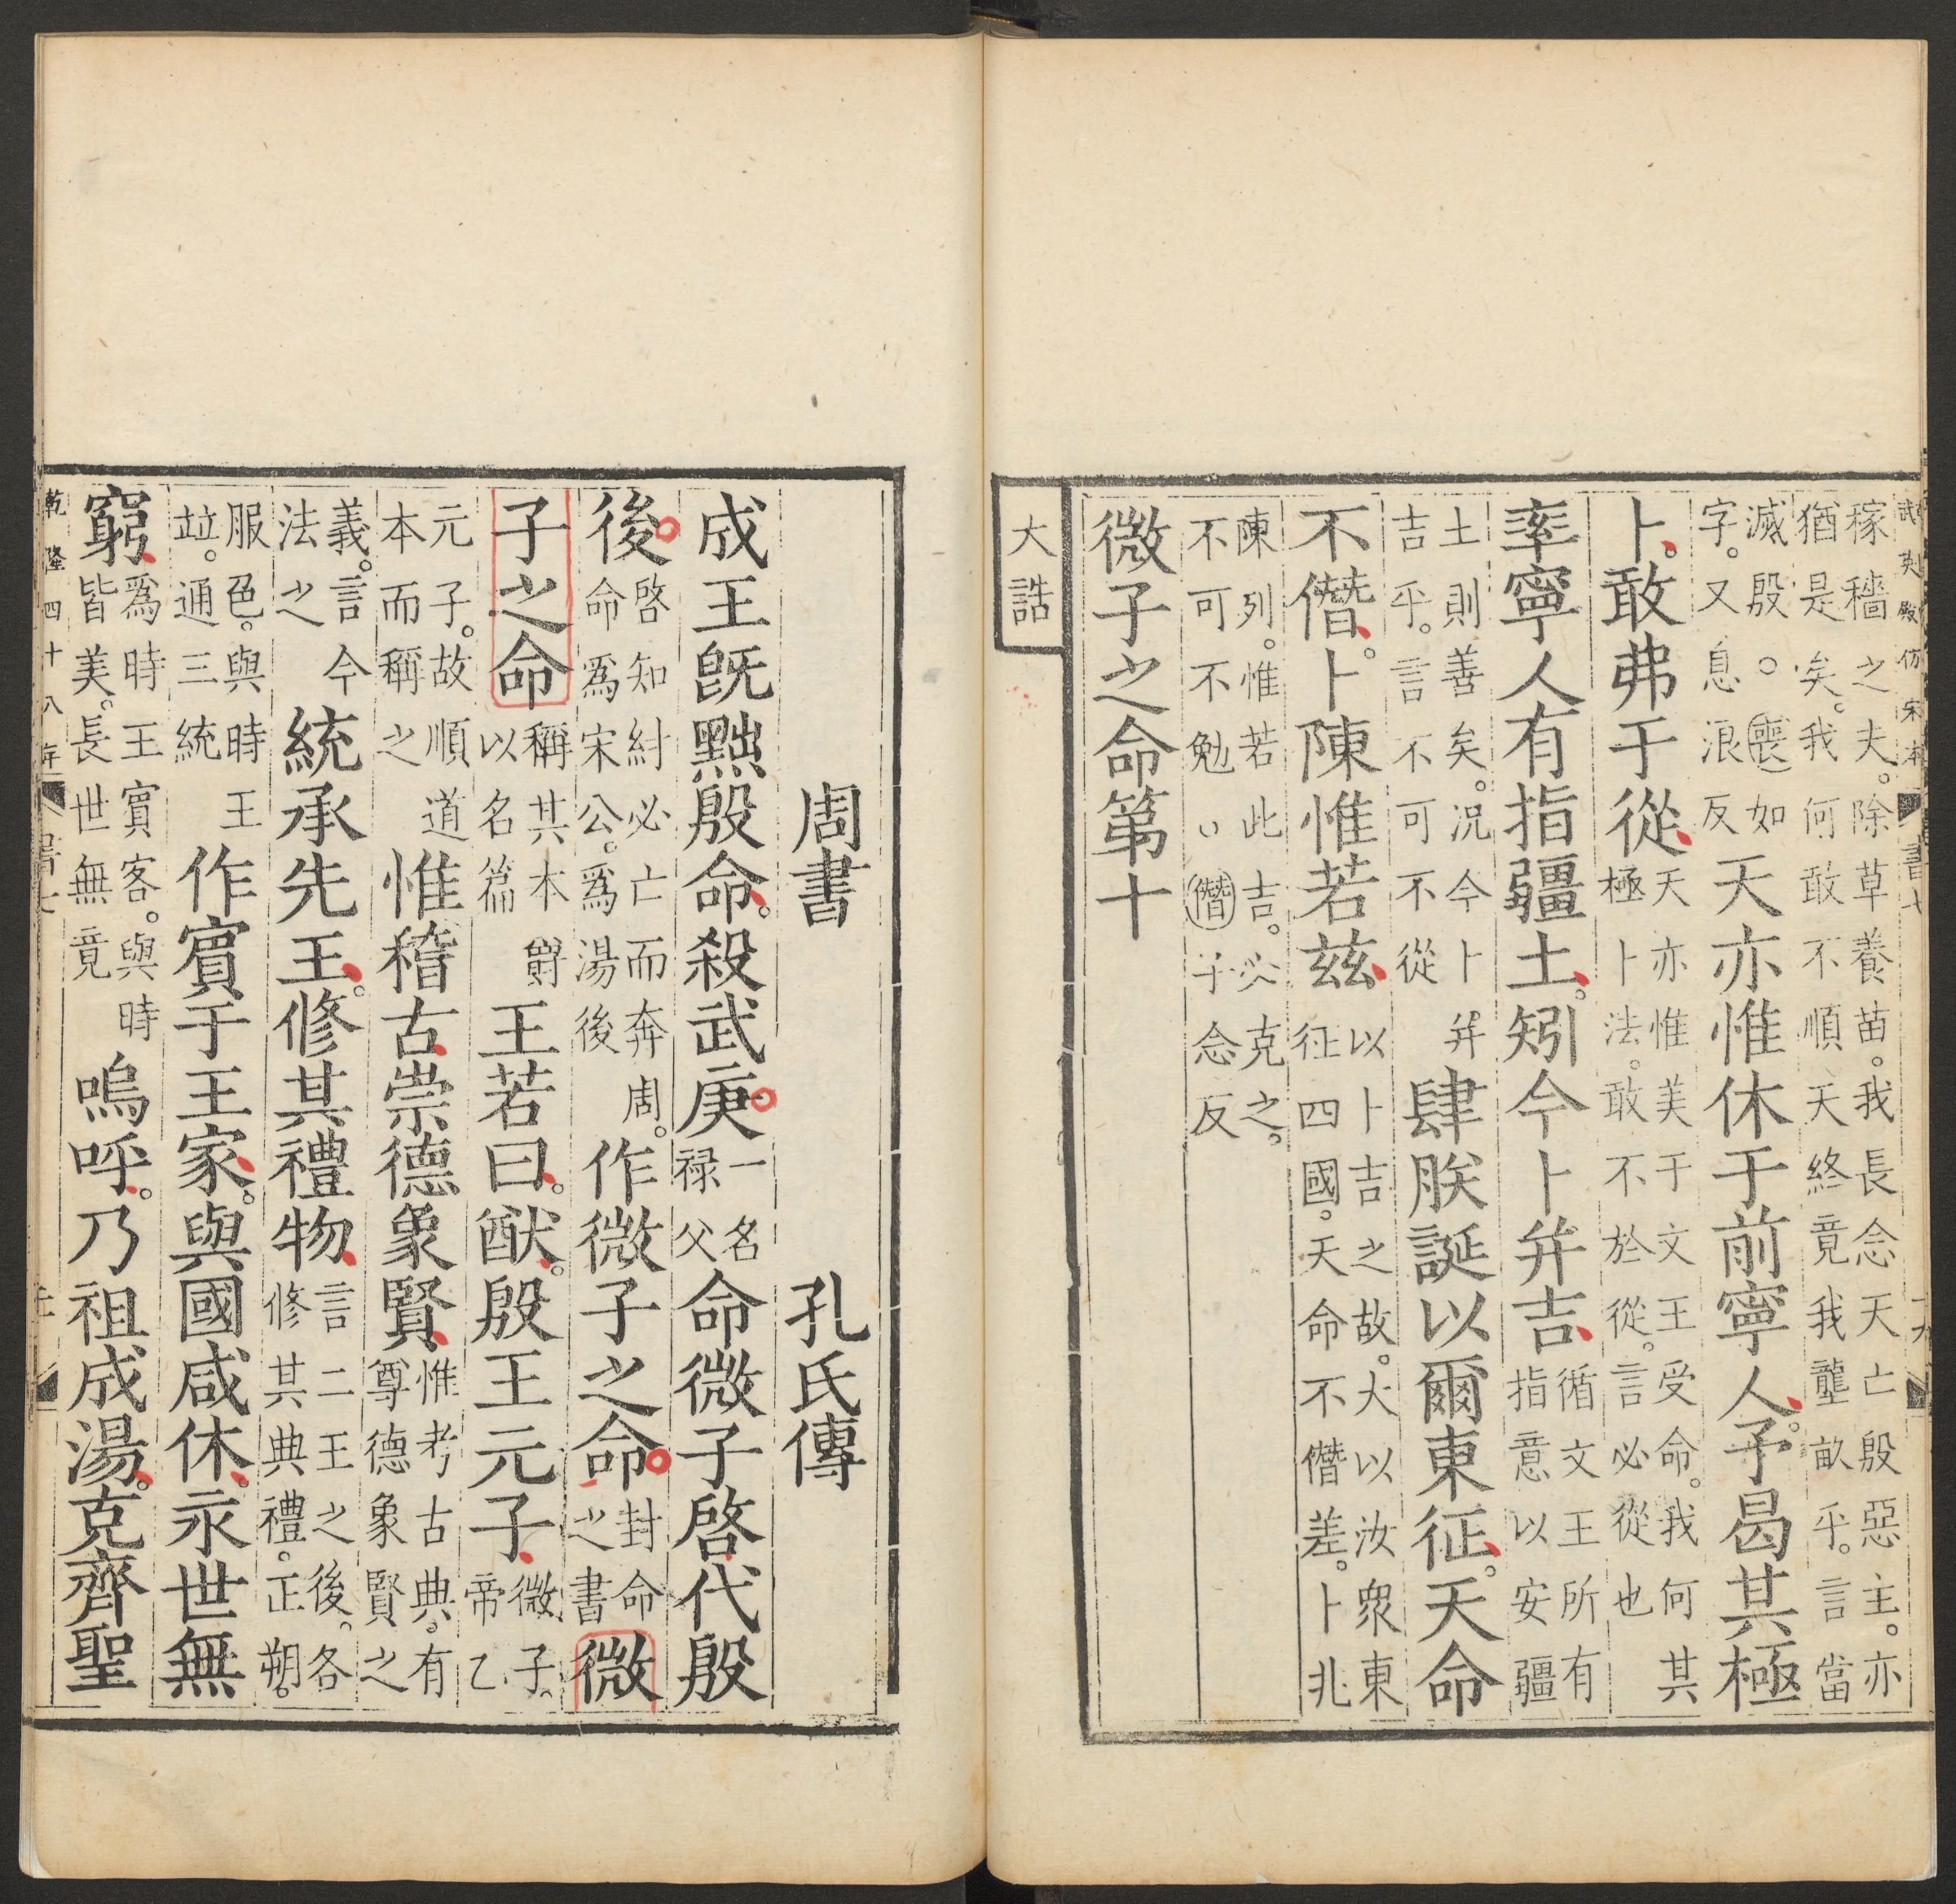 武英殿仿宋本 書七
稼穡之夫。除草養苗。我長念天亡殷惡主。亦
猶是矣。我何敢不順天終竟我壟畝乎。言當
滅殷。○喪如字。又息浪反天亦惟休于前寧人。予曷其極
卜。敢弗于從天亦惟美于文王受命。我何其極卜法。敢不於從。言必從也
率寧人有指疆土。矧今卜并吉循文王所有指意以安疆
土則善矣。況今卜并吉乎。言不可不從肆朕誕以爾東征。天命
不僭。卜陳惟若茲以卜吉之故。大以汝衆東征四國。天命不僭差。卜兆
陳列。惟若此吉。必克之。不可不勉○僭子念反
微子之命第十
大誥
周書 孔氏傳
成王旣黜殷命。殺武庚一名祿父命微子啓代殷
後啓知紂必亡而奔周。命爲宋公。爲湯後作微子之命封命之書微
子之命稱其本爵以名篇王若曰。猷。殷王元子微子。帝乙
元子。故順道本而稱之惟稽古崇德象賢惟考古典。有尊德象賢之
義。言今法之統承先王。修其禮物言二王之後。各修其典禮。正朔。
服色。與時王竝。通三統作賓于王家。與國咸休。永世無
窮爲時王賓客。與時皆美。長世無竟嗚呼。乃祖成湯。克齊聖
乾隆四十八年 書七